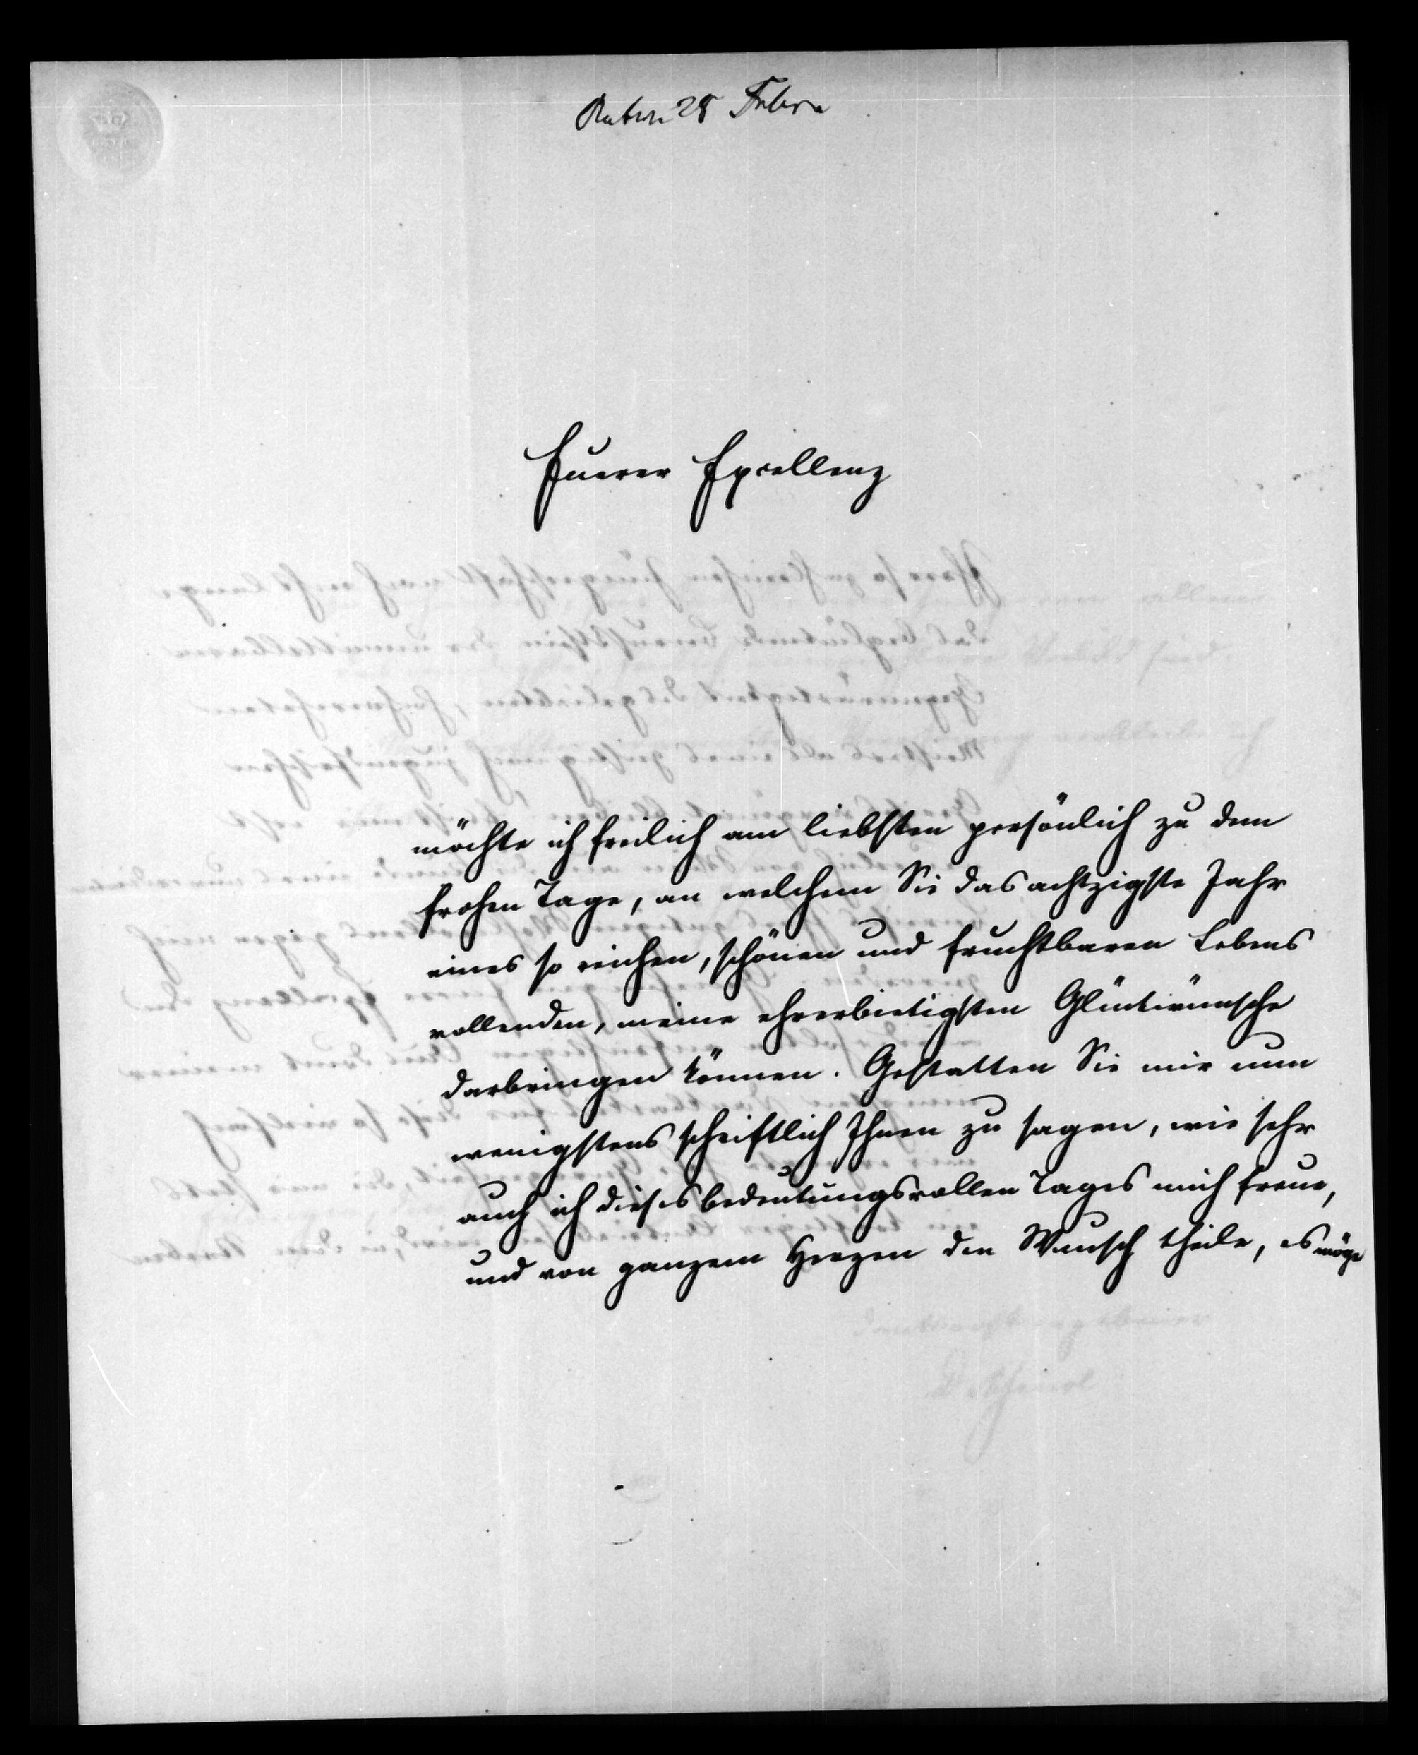 28
Euerer Excellenz
möchte ich freilich am liebsten persönlich zu dem
frohen Tage, an welchem Sie das achtzigste Jahr
eines so reichen, schönen und fruchtbaren Lebens
vollenden, meine ehrerbietigsten Glückwünsche
darbringen können. Gestatten Sie mir nun
wenigstens schriftlich Ihnen zu sagen, wie sehr
auch ich dieses bedeutungsvollen Tages mich freue,
und von ganzem Herzen den Wunsch theile, es möge